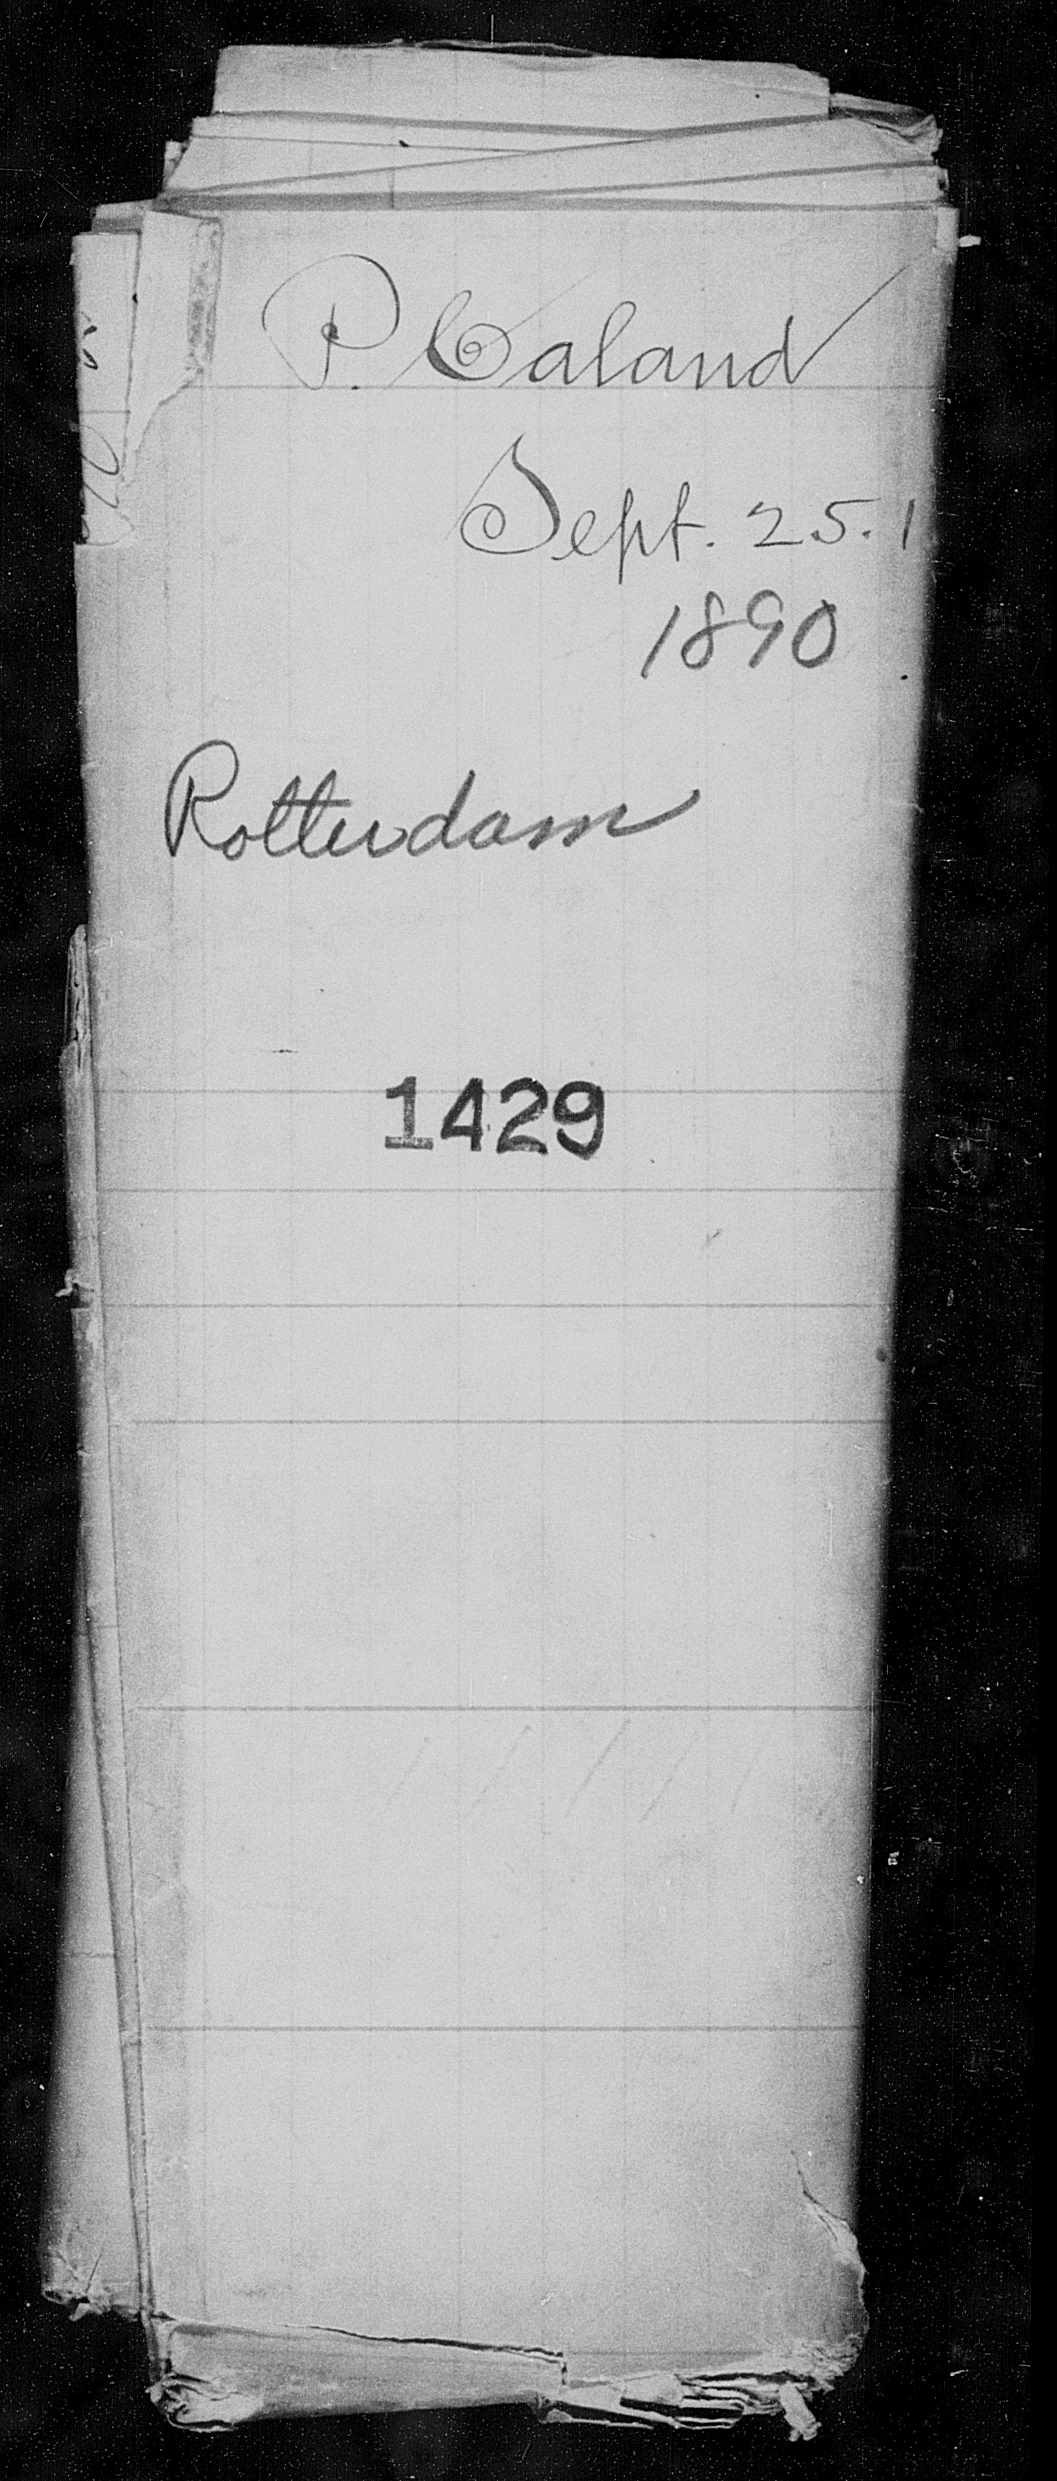 P. Caland
Sept. 25.
1890
Rotterdam
1429